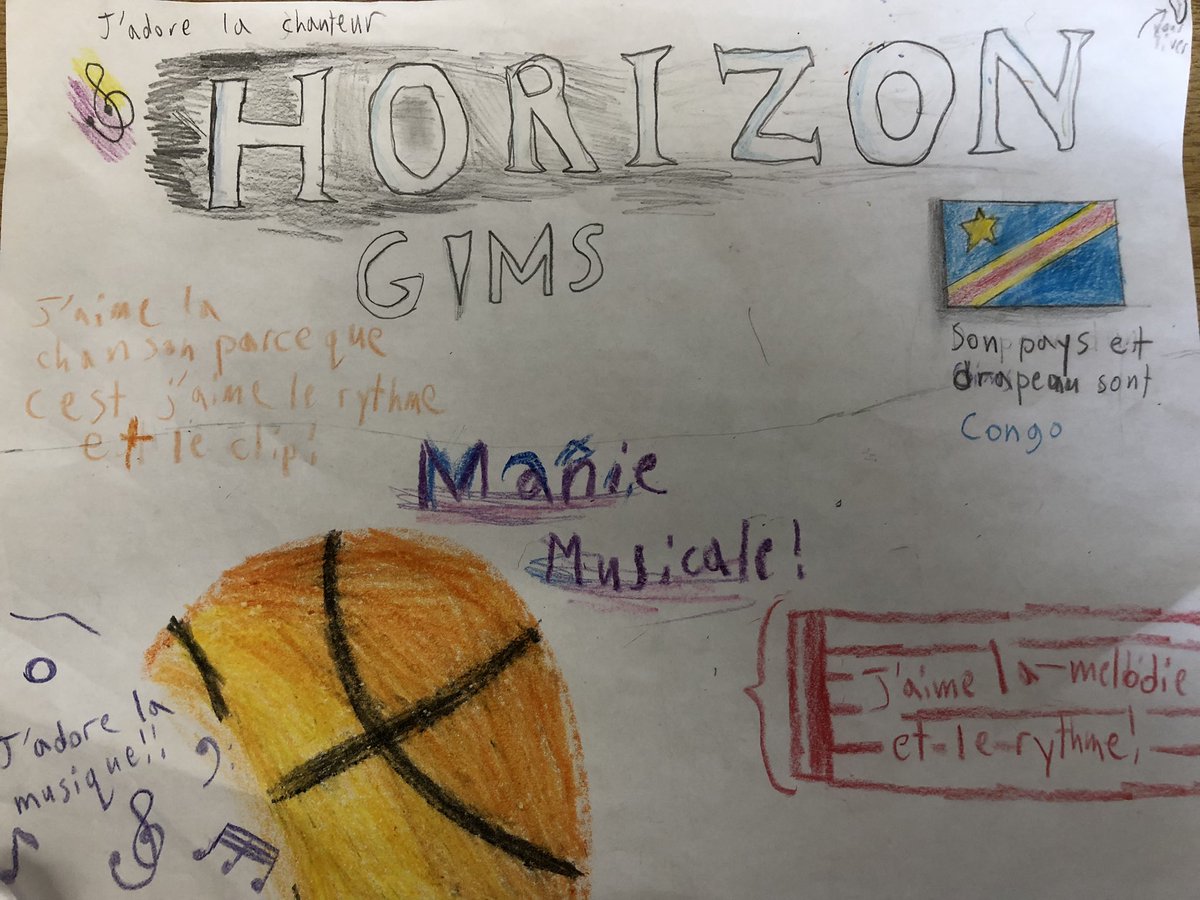 J'adore la chanteur
HORIZON
GIMS
J'aime la
chanson parce que
c'est j'aime le rythme
et le clip!
Son pays et
drapeau sont
Congo
Mañie
Musicale!
J'adore la
musique!!
J'aime la melodie
et le rythme!